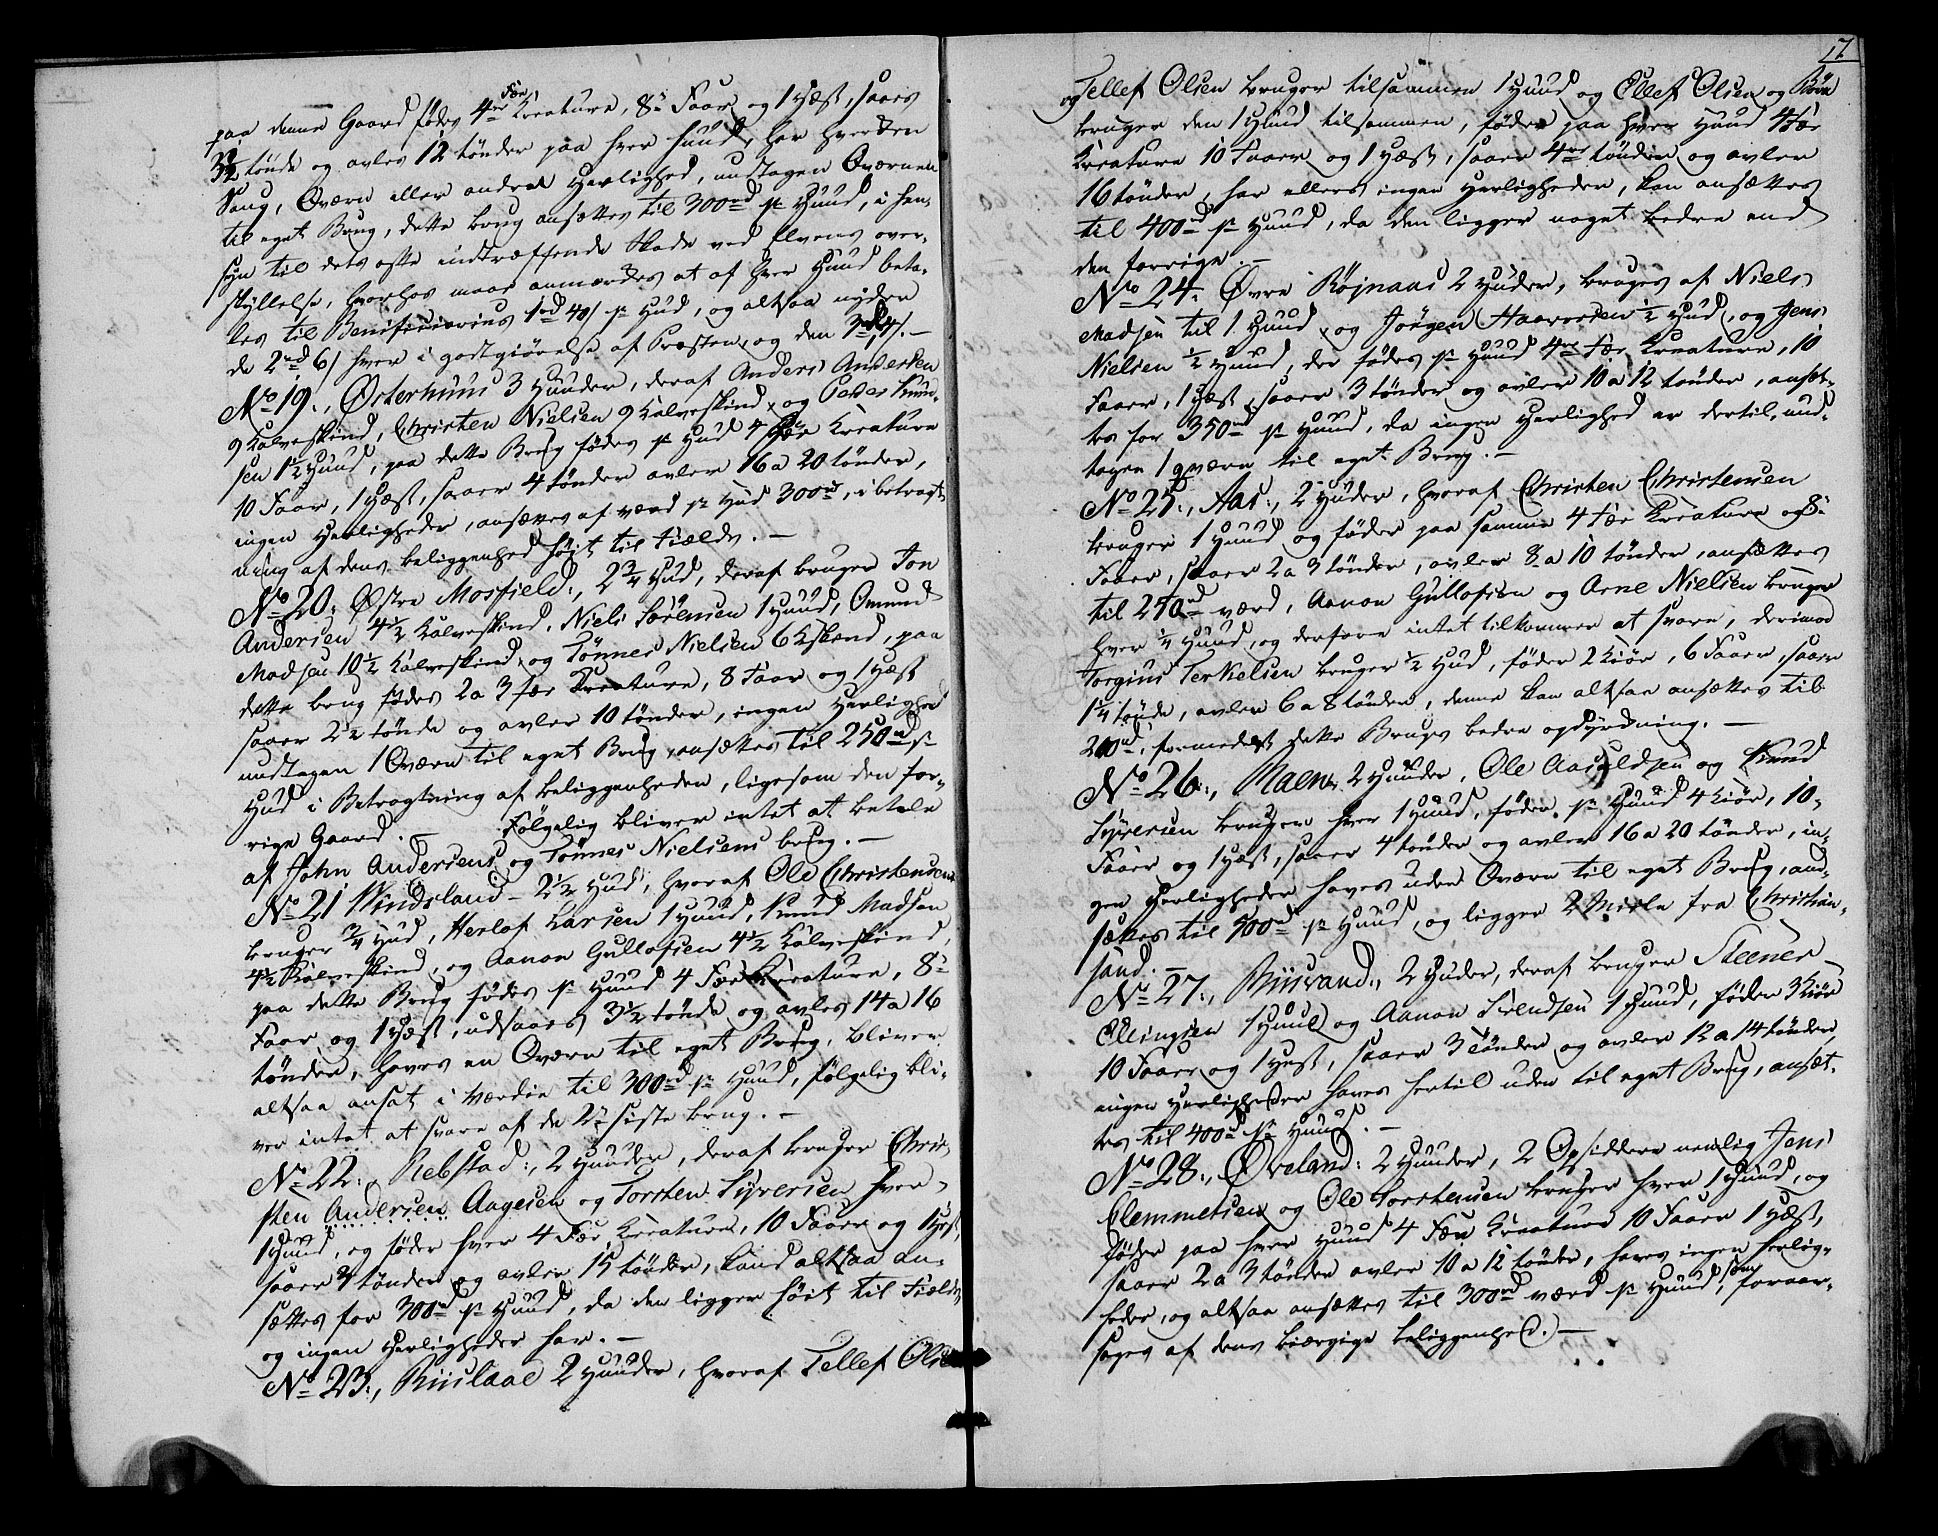 paa denne Gaard födes 4re Fæe Kreature, 8te Faar og 1 Hæst, saaes
3½ tönde og avles 12 tönder paa hver Huud, har hverken
Saug, Qværn eller anden Herlighed, undtagen Qværnen
til eget Brug, dette brug ansættes til 300 rd pr Huud, i hen-
syn til dets ofte indtræffende Skade ved Elvens over-
skyllelse, hvorhos maae anmærkes at af hver Huud beta-
les til Benificiarius 1 rd 40 s pr Hud, og altsaa nyder
de 2 rd 6 s hver i godtgiörelse af Præsten, og den 3 rd 4 s. –
No 19., Østerhuus 3 Huuder, deraf Anders Andersen
9 Kalveskind, Christen Nielsen 9 Kalveskind, og Peder Knud-
sen 1½ Huud, paa dette Brug födes pr Hud 4 Fæe Kreature
10 Faar, 1 Hæst, saaer 4 tönder avler 16 a 20 tönder,
ingen Herligheder, ansættes af værd pr Hud 300 rd, i betragt-
ning af dens beliggenhed höit til Fields. –
No 20. Østre Mosfield., 2¾ Hud, deraf bruger Jon
Andersen 4½ Kalveskind, Niels Sörensen 1 Huud, Omund
Madsen 10½ Kalveskind, og Tönnes Nielsen 6 Kskind, paa
dette brug födes 2 a 3 fæe Kreature, 8 Faar og 1 Hæst
saaer 2½ tönde og avler 10 tönder, ingen Herlighed
undtagen 1 Qværn til eget Brug, ansættes til 250 rd pr
Hud i Betragtning af beliggenheden, ligesom den for-
rige Gaard. – Fölgelig bliver intet at betale
af John Andersens og Tönnes Nielsens brug. –
No 21 Windsland – 2½ Hud, hvoraf Ole Christensen
bruger ¾ Hud, Herlof Larsen 1 Huud, Knud Madsen
4½ Kalveskind, og Aanon Gullofsen 4½ Kalveskind,
paa dette Brug födes pr Huud 4 Fæe Kreature, 8te
Faar og 1 Hæst, udsaaes 3½ tönde og avles 14 a 16
tönder, haves en Qværn til eget Brug, bliver
altsaa ansat i Værdie til 300 rd pr Huud, fölgelig bli-
ver intet at svare af de 2de siste brug. –
No 22., Rebstad., 2 Huuder, deraf bruger Chris-
sten Andersen Aagesen og Torsten Syversen hver
1 Huud, og föder hver 4 Fæe Kreature, 10 Faaer og 1 Hæst,
saaer 3 tönder og avler 15 tönder, kand altsaa an-
sættes for 300 rd pr Huud, da den ligger höit til Fields
og ingen Herligheder har. –
No 23., Biislaae 2 Huuder, hvoraf Tellef Olsen
17
og Tellef Olsen bruger tilsammen 1 Huud og Ellef Olsen og
bruger den 1 Huud tilsammen, föder paa hver Huud 4 Fæe
Kreature 10 Faaer og 1 Hæst, saaer 4re tönder og avler
16 tönder, har ellers ingen Herligheder, kan ansættes
til 400 rd pr Huud, da den ligger noget bedre end
den forrige. –
No 24. Øvre Röjnaas 2 Huder, bruges af Niels
Madsen til 1 Huud, og Jörgen Haavorsen ½ Hud, og Jens
Nielsen ½ Huud, der födes pr Huud 4re Fæe Kreature, 10
Faaer, 1 Hæst, saaer 3 tönder og avler 10 a 12 tönder, ansæt-
tes for 350 rd pr Huud, da ingen Herlighed er dertil, und-
tagen 1 qværn til eget Brug. –
No 25., Aas., 2 Huder, hvoraf Christen Christensen
bruger 1 Huud og föder paa samme 4 Fæe Kreature og 8te
Faaer, saaer 2 a 3 tönder, avler 8 a 10 tönder, ansættes
til 250 rd værd, Aanon Gullofsen og Arne Nielsen bruger
hver ¼ Huud, og derfore intet tilkommer at svare, derimod
Torgius Terkelsen bruger ½ Hud, föder 2 Kiör, 6 Faaer, saaer
1¼ tönde, avler 6 a 8 tönder, denne kan altsaa ansættes til
200 rd, formedelst dette Brugs bedre opdyrkning. –
No 26., Maen 2 Huuder, Ole Aasuldsen og Knud
Syversen bruger hver 1 Huud, föder pr Huud 4 Kiör, 10
Faaer og 1 Hæst, saaer 4 tönder og avler 16 a 20 tönder, in-
gen Herligheder haves uden Qværn til eget Brug, an-
sættes til 500 rd pr Huud, og ligger 2 Miile fra Christian-
sand. –
No 27., Biisvand., 2 Huder, deraf bruger Steener
Ellingsen 1 Huud og Aanon Svendsen 1 Huud, föder 3 Kiör
10 Faaer og 1 Hæst, saaer 3 tönder og avler 12 a 14 tönder,
ingen Herligheder haves hertil uden til eget Brug, ansæt-
tes til 400 rd pr Huud. –
No 28., Øveland. 2 Huuder, 2 Opsiddere nemlig Jens
Clemmetsen og Ole Torstensen bruger hver 1 Huud, og
föder paa hver Huud 4 Fæe Kreature 10 Faaer 1 Hæst,
saaer 2 a 3 tönder avler 10 a 12 tönder, haves ingen Herlig-
heder, og altsaa ansættes til 300 rd værd pr Huud, som foraar-
sages af dens biærgige beliggenhed. –